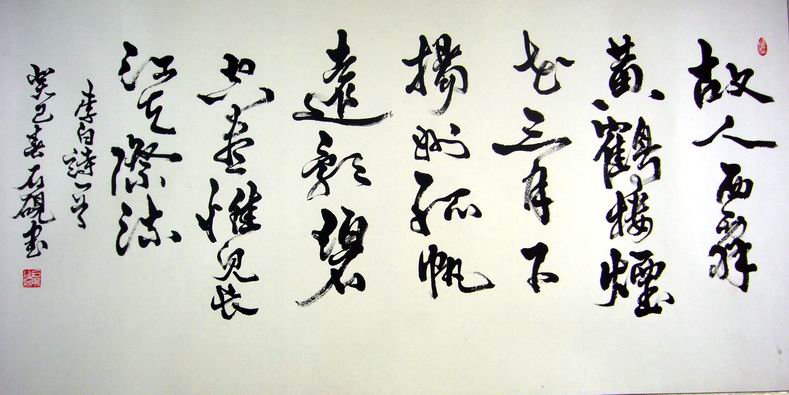 故人西辞
黄鶴楼煙
花三月下
揚州孤帆
遠影碧
空盡惟見長
江天際流
李白詩一首
癸巳春石硯書